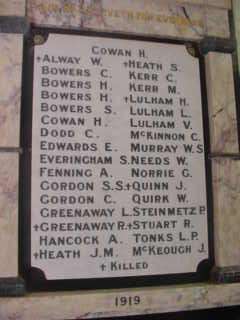 LIVETH FOR EVERMORE
COWAN H.
†ALWAY W. †HEATH S.
BOWERS C. KERR C.
BOWERS H. KERR M.
BOWERS H. †LULHAM H.
BOWERS S. LULHAM L.
COWAN H. LULHAM V.
DODD C. MCKINNON C.
EDWARDS E. MURRAY W.S
EVERINGHAM S. NEEDS W.
FENNING A. NORRIE G.
GORDON S.S †QUINN J.
GORDON C. QUIRK W.
GREENAWAY L. STEINMETZ P.
†GREENAWAY R. †STUART R.
HANCOCK A. TONKS L.P.
†HEATH J.M. MCKEOUGH J.
† KILLED
1919